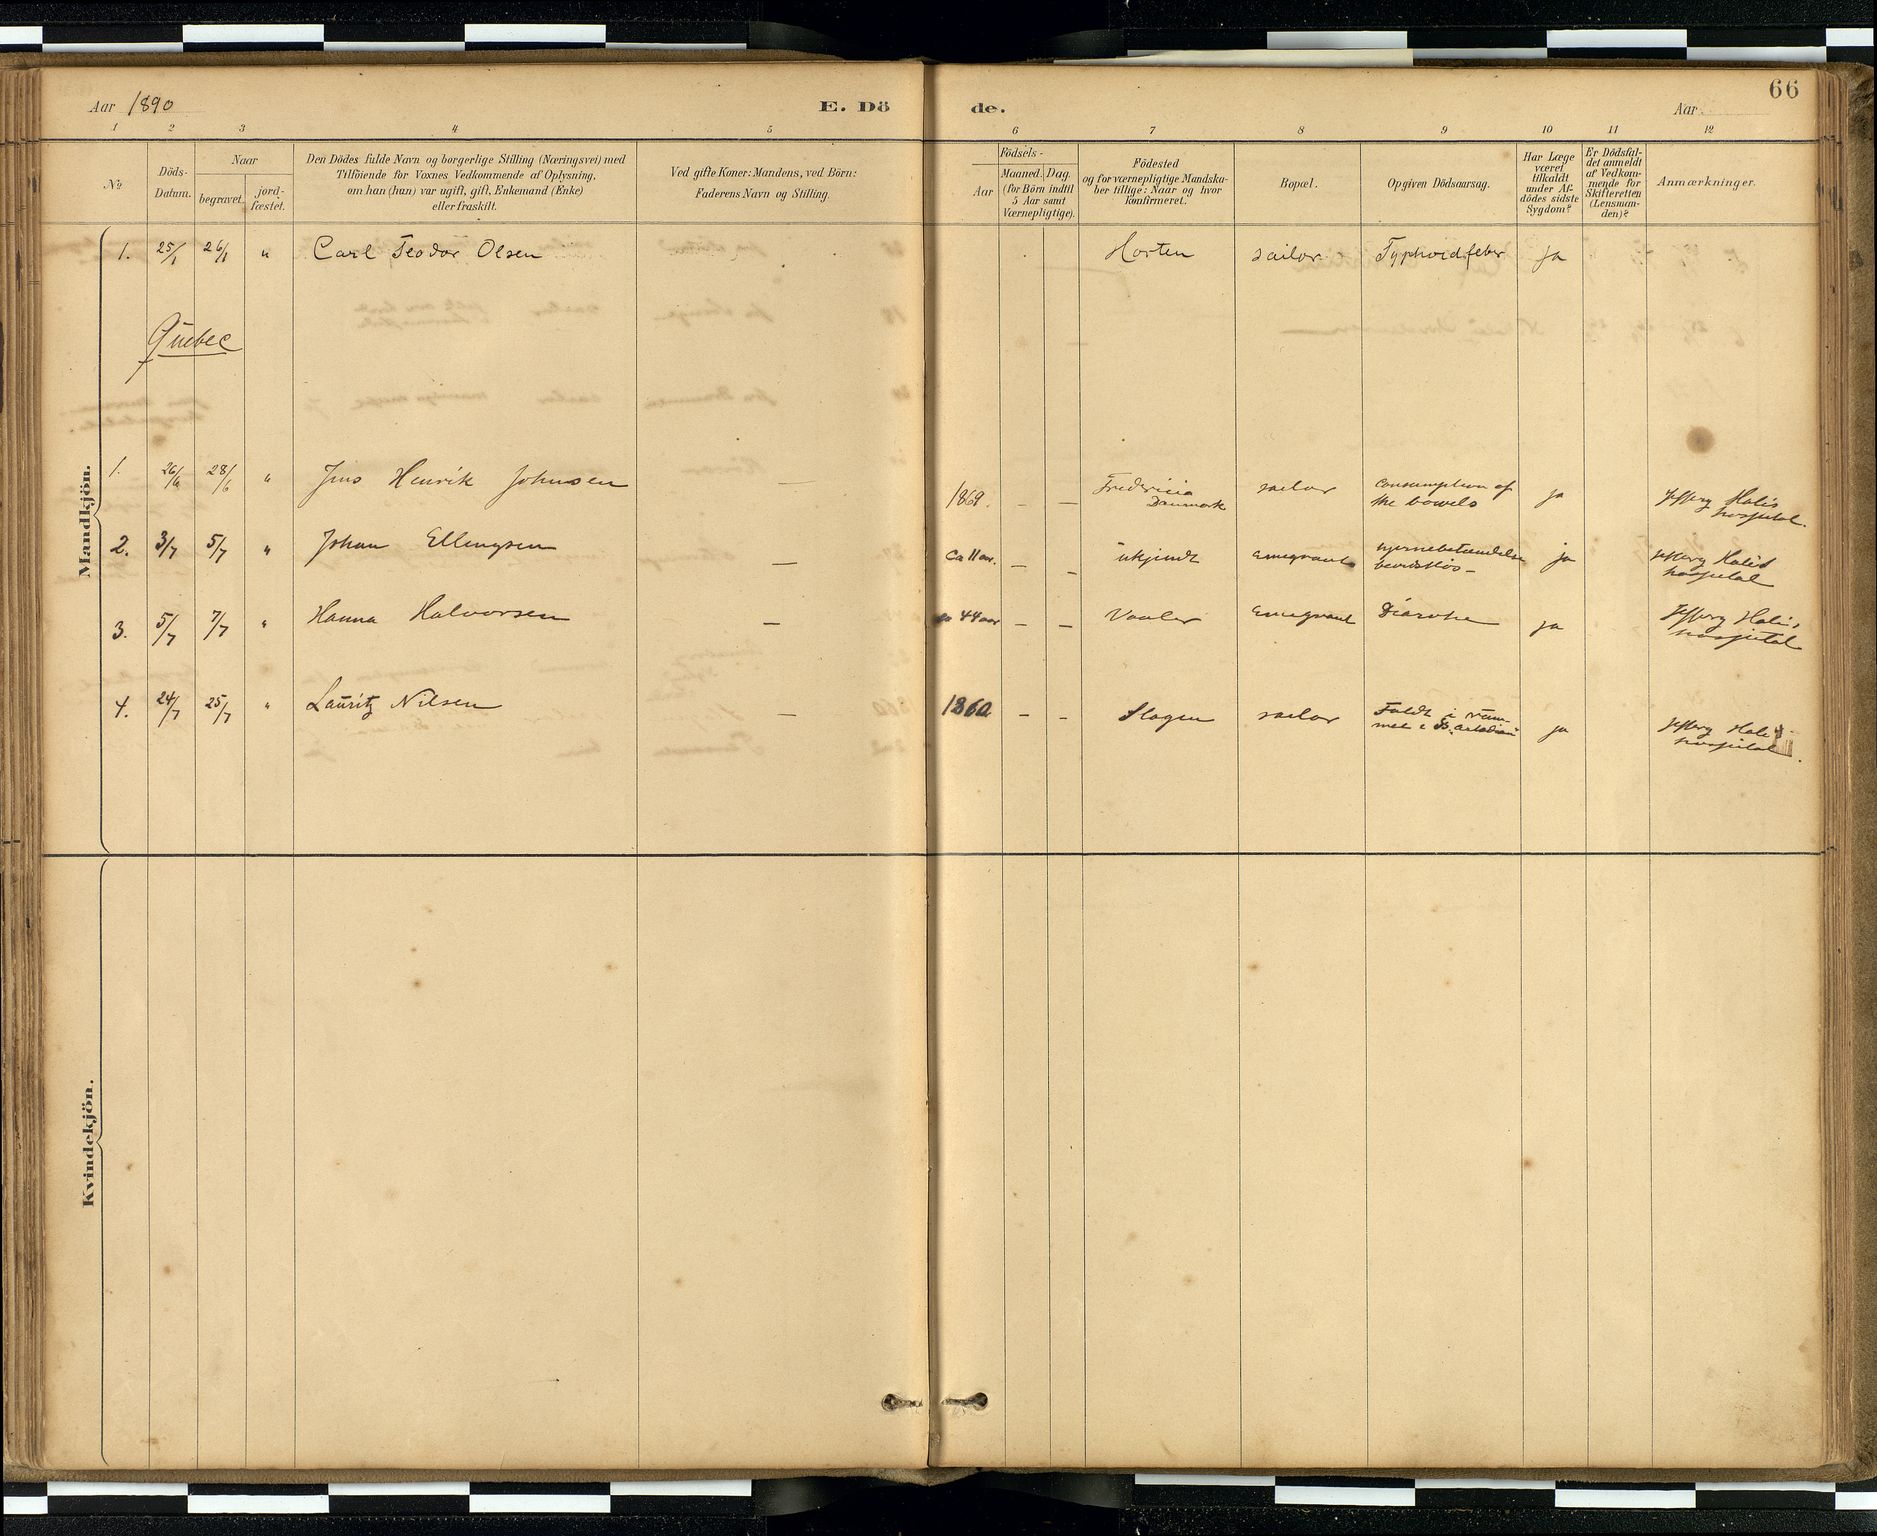 66
Aar 1890 E. Dö de. Aar
1 2 3 4 5 6 7 8 9 10 11 12
No
Döds-
Datum.
Naar
begravet.
jord-
fæstet.
Den Dödes fulde Navn og borgerlige Stilling (Næringsvei) med
Tilföiende for Voxnes Vedkommende af Oplysning,
om han (hun) var ugift, gift, Enkemand (Enke)
eller fraskilt.
Ved gifte Koner: Mandens, ved Börn:
Faderens Navn og Stilling.
Födsels-
Aar
Maaned. Dag.
(for Börn indtil
5 Aar samt
Værnepligtige).
Födested
og for værnepligtige Mandska-
ber tillige: Naar og hvor
konfirmeret.
Bopæl.
Opgiven Dödsaarsag.
Har Læge
været
tilkaldt
under Af-
dödes sidste
Sygdom?
Er Dödsfal-
det anmeldt
af Vedkom-
mende for
Skifteretten
(Lensman-
den)?
Anmærkninger.
Mandkjön.
1. 25/1 26/1 " Carl Teodor Olsen Horten sailor Typhoidfeber Ja
Quebec
1. 26/6 28/6 " Jens Henrik Johnsen — 1869. — — Fredericia
Danmark sailor Consumption of
the bowels ja Jeffery Hale's
hospital.
2. 3/7 5/7 " Johan Ellingsen — Ca 11 aar. — — ukjendt emegrant hjernebetændelse
bevidstløs — ja Jeffery Hale's
hospital
3. 5/7 7/7 " Hanna Halvorsen — 44 aar — — Vaaler Emegrant Diarrhe ja Jeffery Hale's
hospital
4. 24/7 25/7 " Lauritz Nilsen — 1860 — — Slagen sailor Faldt i rum-
met i ja Jeffery Hale's
hospital.
Kvindekjön.